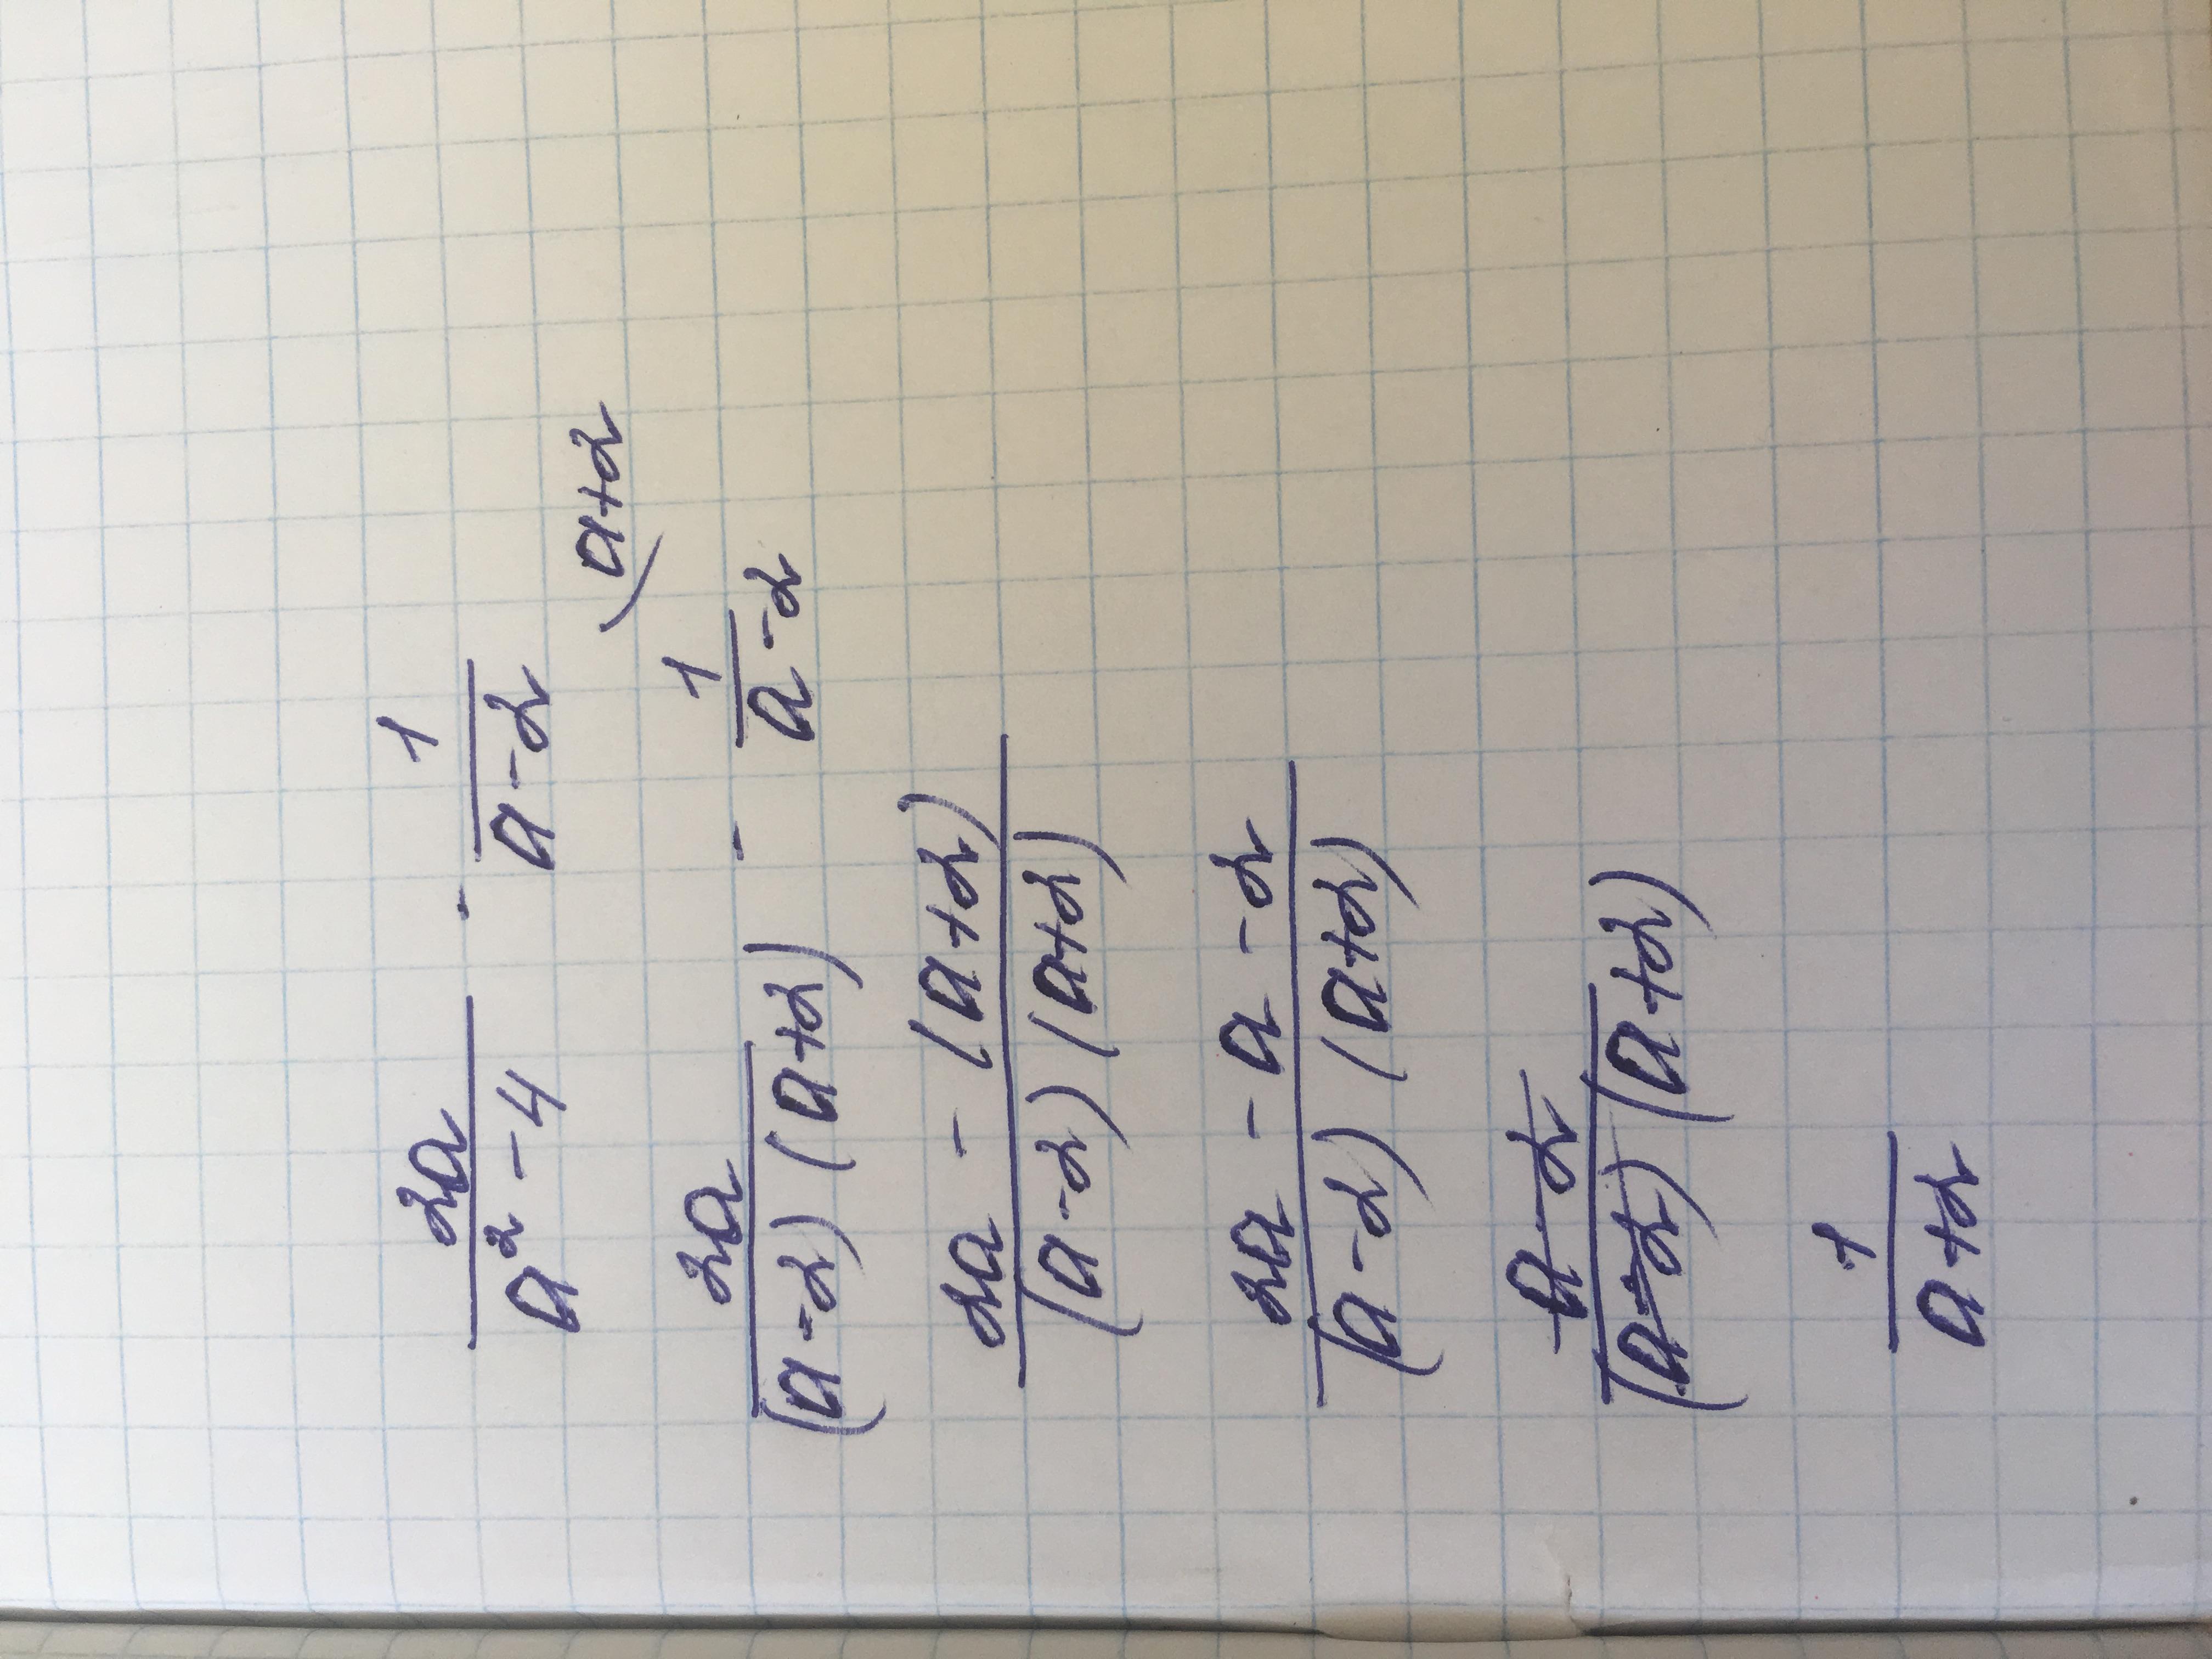 2a/(a² - 4) - 1/(a - 2)
2a/((a - 2)(a + 2)) - 1/(a - 2) (a + 2
(2a - (a + 2))/((a - 2)(a + 2))
(2a - a - 2)/((a - 2)(a + 2))
(a - 2)/((a - 2)(a + 2))
1/(a + 2)